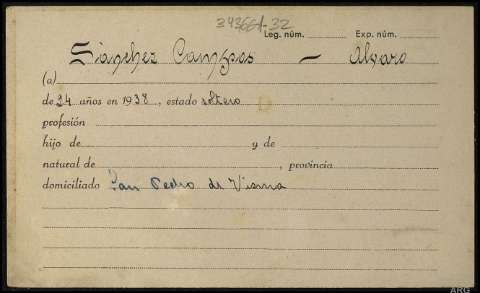 343664-32
Leg. núm. Exp. núm.
Sánchez Campos - Alvaro
(a)
de 24 años en 1938, estado soltero
profesión
hijo de y de
natural de , provincia
domiciliado San Pedro de Visma
ARG